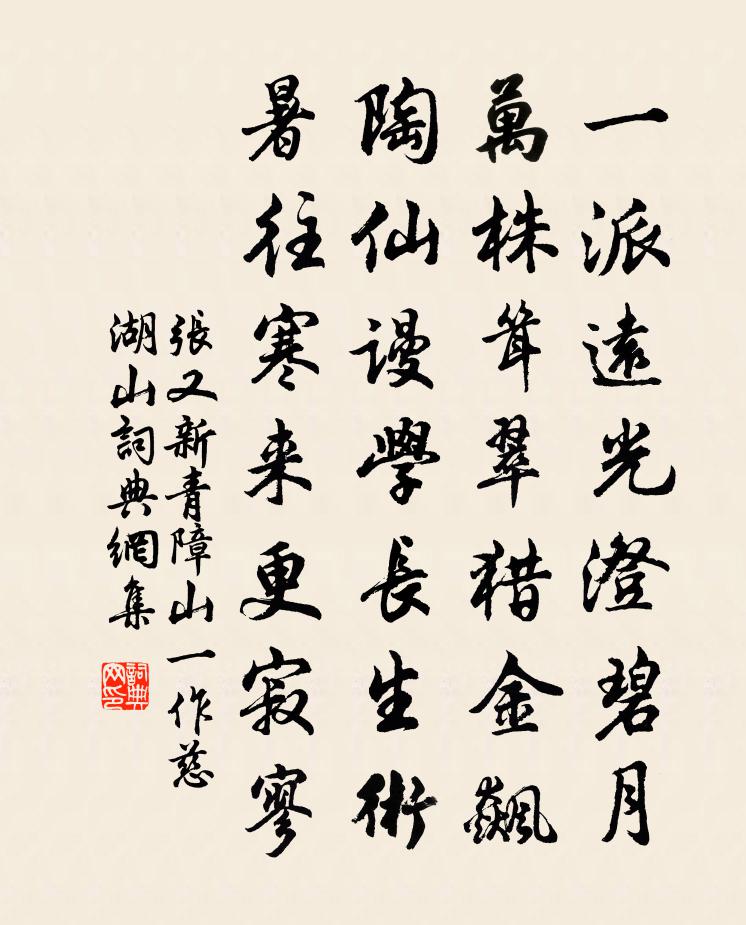 一派遠光澄碧月
萬株聳翠猎金飆
陶仙謾學長生術
暑往寒来更寂寥
張又新青障山一作慈
湖山詞典網集
詞典網印